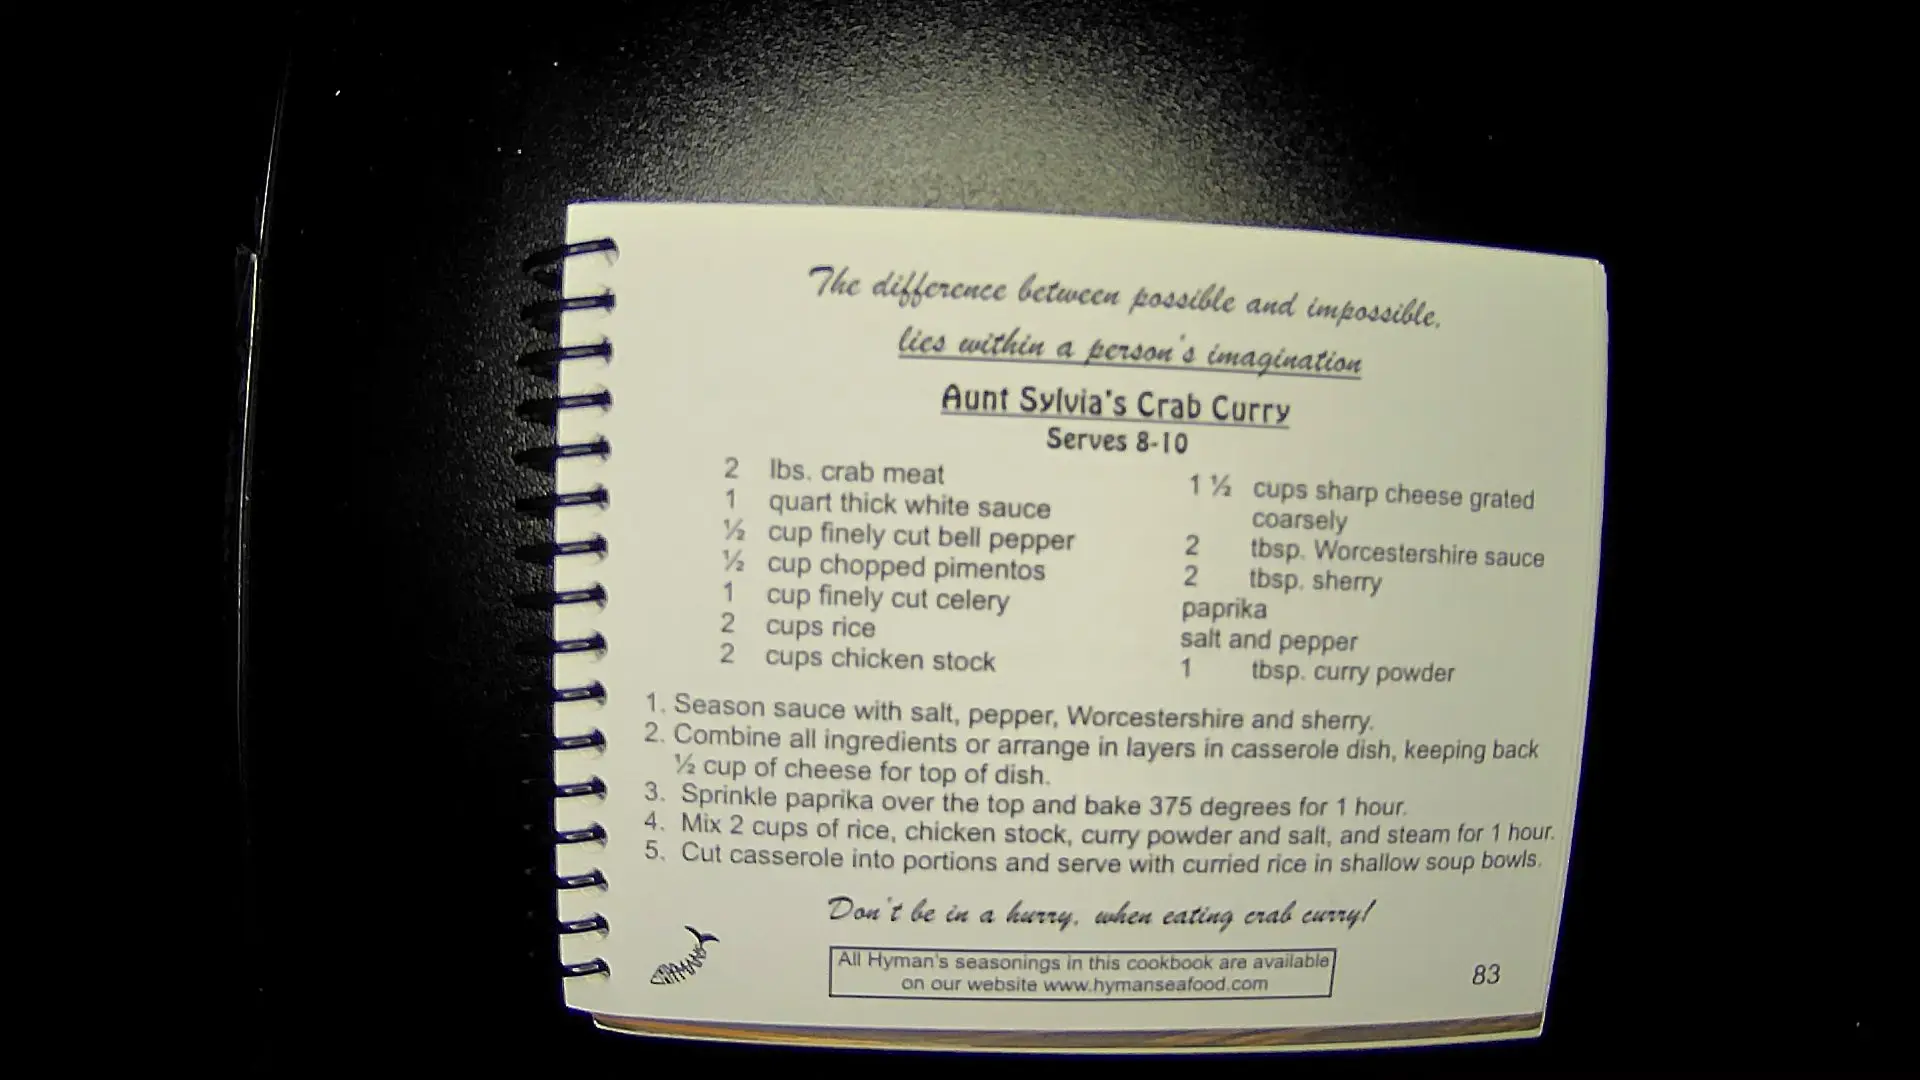 The difference between possible and impossible,
lies within a person's imagination
Aunt Sylvia's Crab Curry
Serves 8-10
2 lbs. crab meat
1 quart thick white sauce
½ cup finely cut bell pepper
½ cup chopped pimentos
1 cup finely cut celery
2 cups rice
2 cups chicken stock
1 ½ cups sharp cheese grated
coarsely
2 tbsp. Worcestershire sauce
2 tbsp. sherry
paprika
salt and pepper
1 tbsp. curry powder
1. Season sauce with salt, pepper, Worcestershire and sherry.
2. Combine all ingredients or arrange in layers in casserole dish, keeping back
½ cup of cheese for top of dish.
3. Sprinkle paprika over the top and bake 375 degrees for 1 hour.
4. Mix 2 cups of rice, chicken stock, curry powder and salt, and steam for 1 hour.
5. Cut casserole into portions and serve with curried rice in shallow soup bowls.
Don't be in a hurry, when eating crab curry!
HYMANS
All Hyman's seasonings in this cookbook are available
on our website www.hymanseafood.com
83